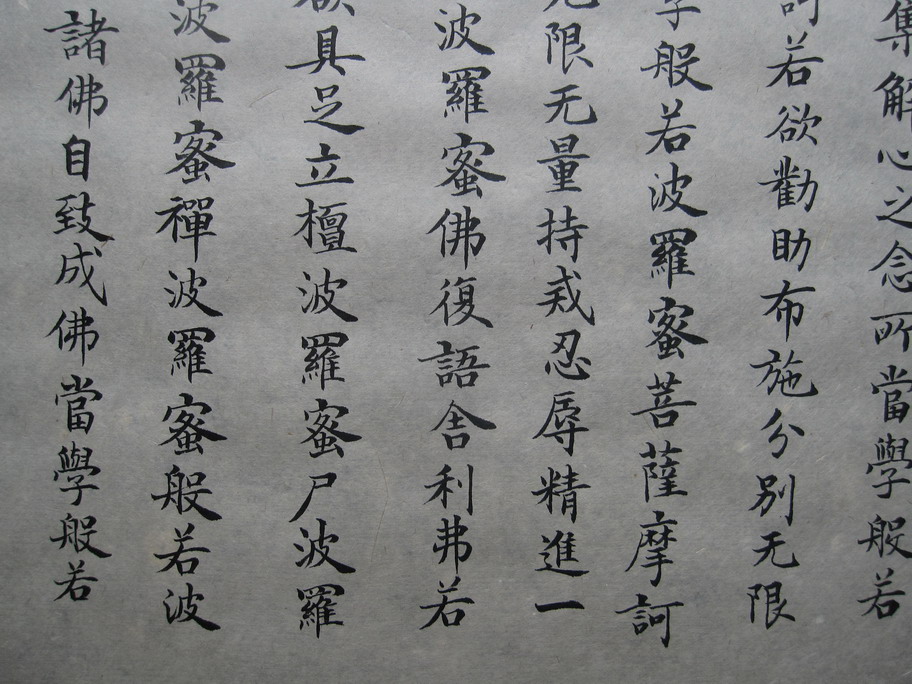 集解心之念所當學般若
訶若欲勸助布施分別无限
學般若波羅蜜菩薩摩訶
无限无量持戒忍辱精進一
波羅蜜佛復語舍利弗若
欲具足立檀波羅蜜尸波羅
波羅蜜禪波羅蜜般若波
諸佛自致成佛當學般若